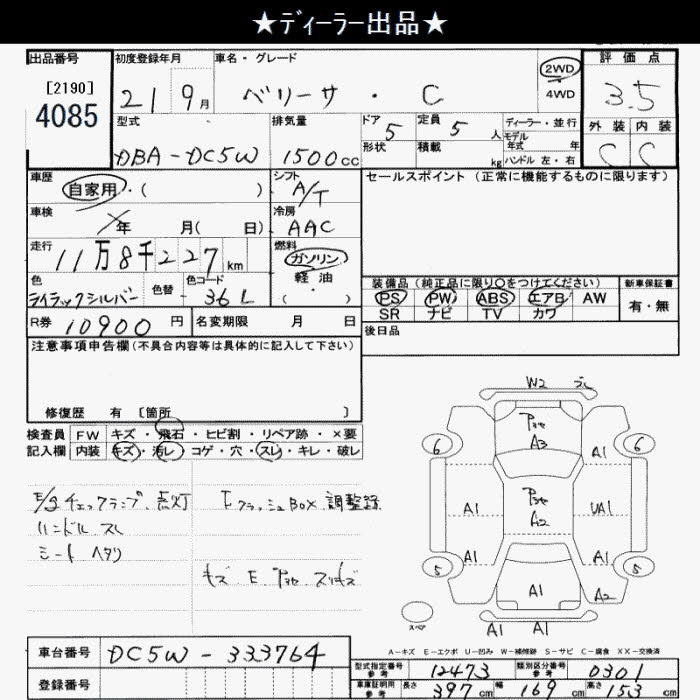 ★ディーラー出品★
出品番号
[2190]
4085
初度登録年月
21 9月
車名・グレード
ベリーサ ・ C
2WD
4WD
評価点
3.5
外装 内装
C C
型式
DBA-DC5W
排気量
1500cc
ドア 5
形状
定員 5 人
積載 kg
ディーラー・並行
モデル
年式 年
ハンドル 左・右
車歴
自家用・( )
シフト
A/T
セールスポイント (正常に機能するものに限ります)
車検
年 月( 日)
冷房
AAC
走行
11万8千227km
燃料
ガソリン
軽油
( )
色
ライラックシルバー
色替
色コード
36L
装備品(純正品に限り○をつけてください)
PS PW ABS エアB AW
SR ナビ TV カワ
新車保証書
有・無
R券 10900円
名変期限 月 日
後日品
注意事項申告欄(不具合内容等は具体的に記入して下さい)
修復歴 有 〔箇所 〕
検査員
記入欄
FW キズ・飛石・ヒビ割・リペア跡・×要
内装 キズ・汚レ・コゲ・穴・スレ・キレ・破レ
E/g チェックランプ、点灯
ハンドル スレ
シート ヘタリ
E クラッシュBOX 調整録
キズ E
W2
A3
6 6
A1
A1
A2
UA1
A1
A1
5 5
A1
A2
A1 A1
スペア
A-キズ E-エクボ U-凹み W-補修跡 S-サビ C-腐食 XX-交換済
車台番号
DC5W-333764
登録番号
型式指定番号
参考
12473
類別区分番号
参考
0301
車庫証明用
参考
長さ 397cm
幅 169cm
高さ 153cm